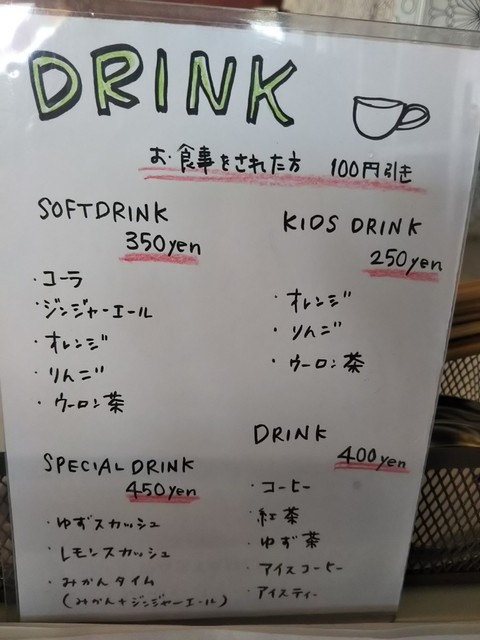 DRINK
お食事をされた方 100円引き
SOFTDRINK
350yen
・コーラ
・ジンジャーエール
・オレンジ
・りんご
・ウーロン茶
KIDS DRINK
250yen
・オレンジ
・りんご
・ウーロン茶
SPECIAL DRINK
450yen
・ゆずスカッシュ
・レモンスカッシュ
・みかんタイム
(みかん+ジンジャーエール)
DRINK
400yen
・コーヒー
・紅茶
・ゆず茶
・アイスコーヒー
・アイスティー